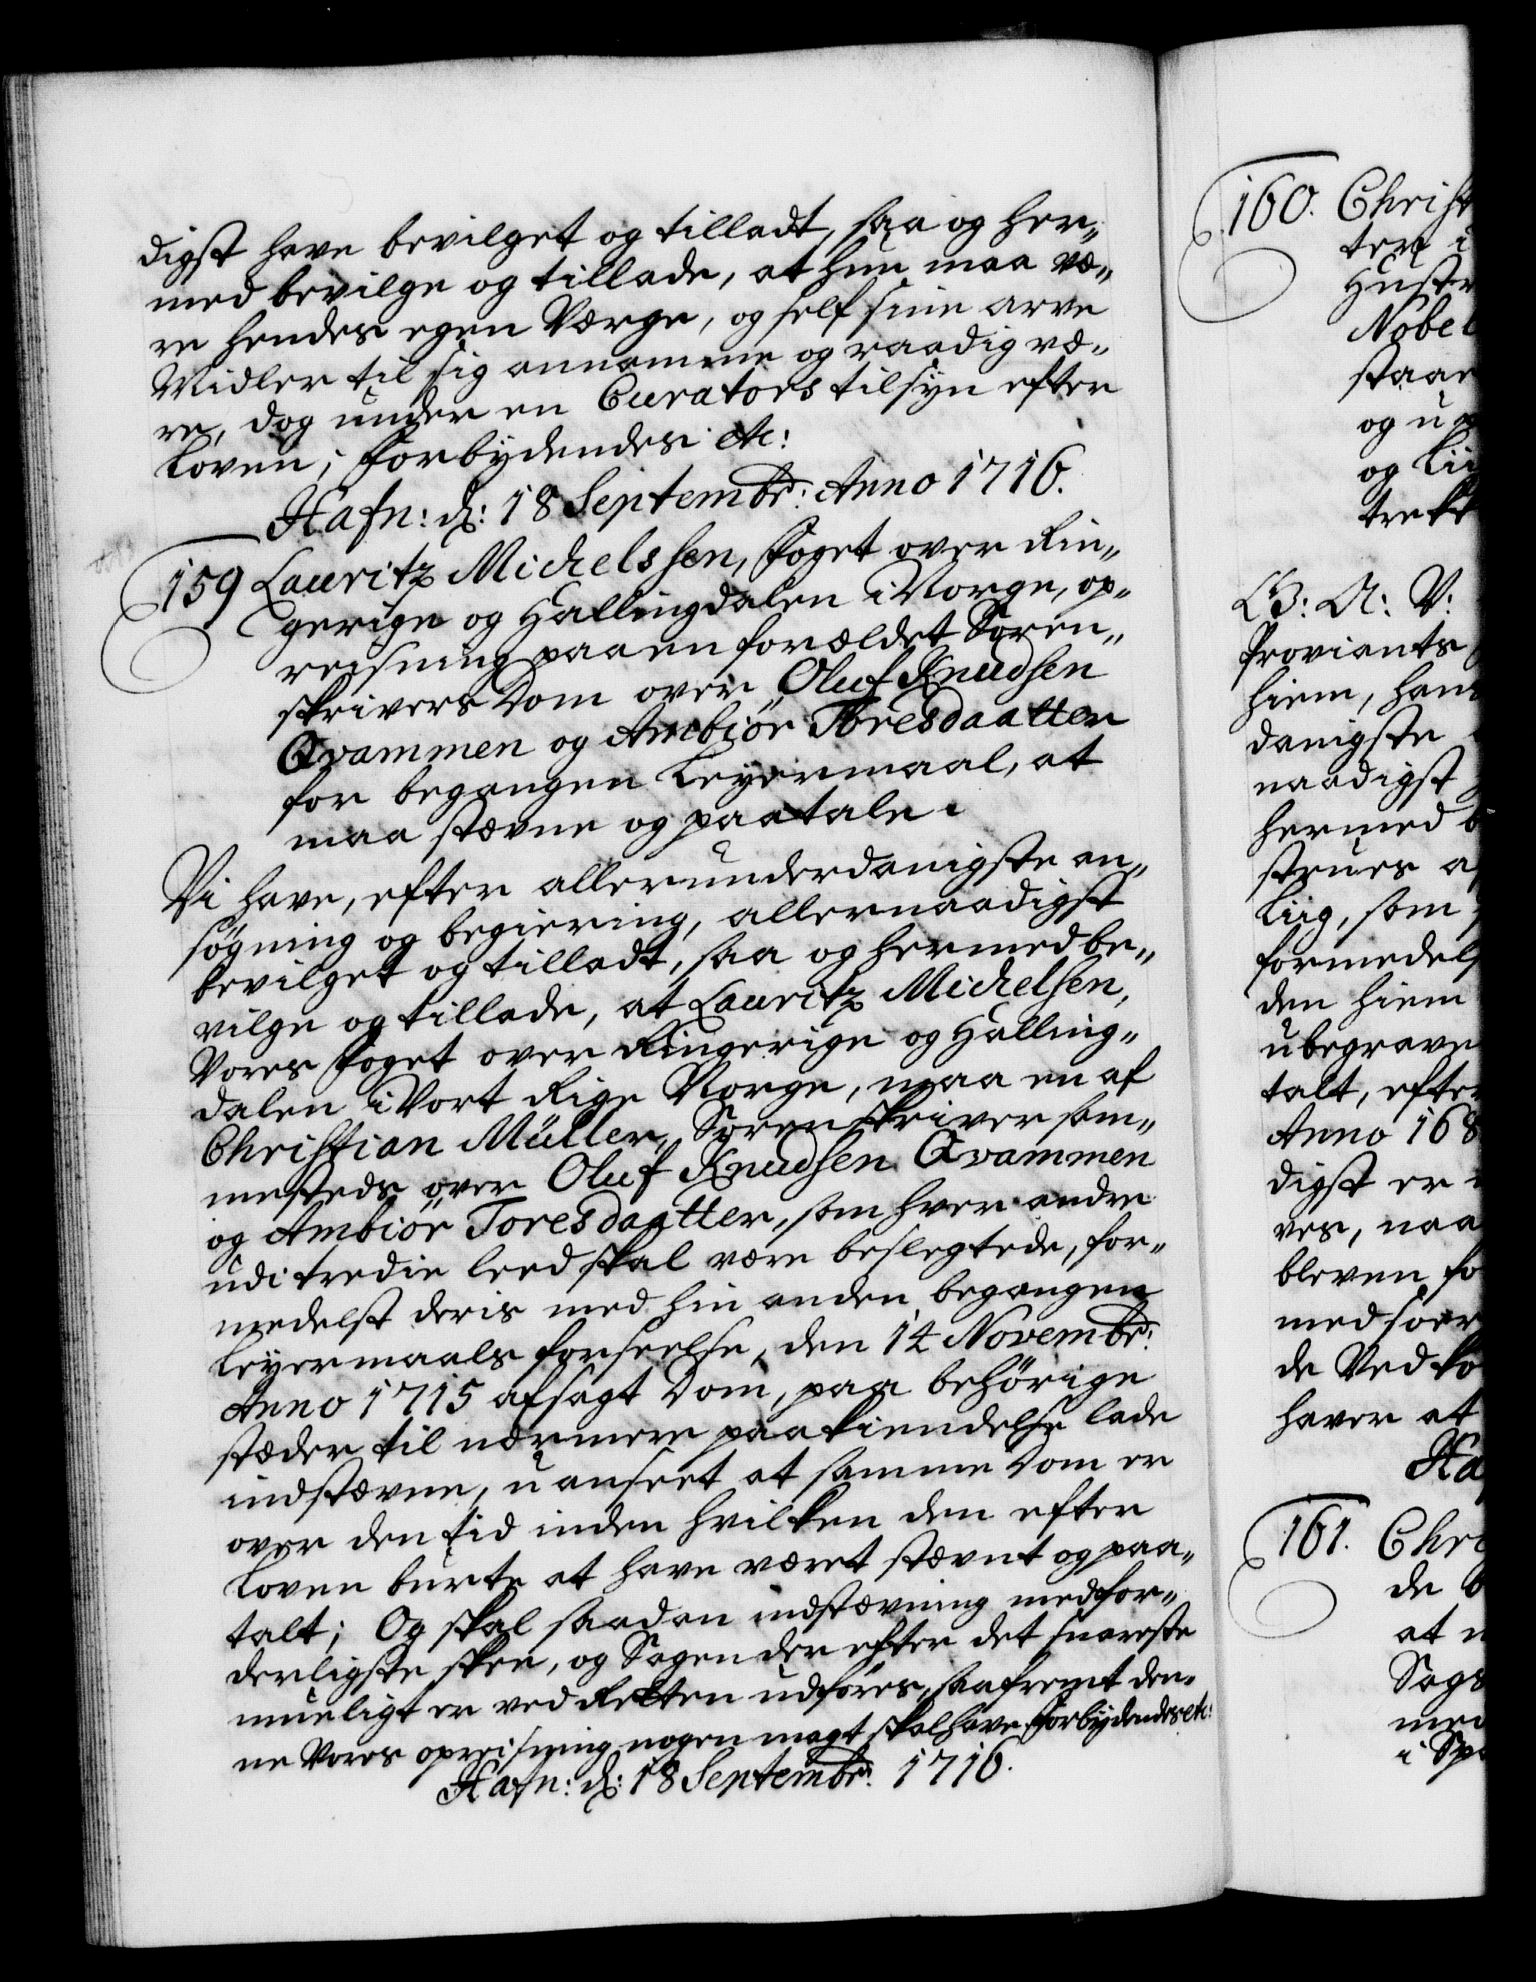 digst have bevilget og tilladt, saa og her„
med bevilge og tillade, at hun maa væ„
re hendes egen Værge, og self sine arve
Midler til sig annamme og raadig væ„
re, dog under en Curators tilsyn efter
Loven; Forbydendes etc:
Hafn: d: 18 Septembr: Anno 1716.
159 Lauritz Michelssen, Foget over Rin„
gerige og Hallingdalen i Norge, op„
reisning paa en forældet Soren„
skrivers Dom over Oluf Knudsen
Qvammen og Ambiör Toresdaatter
for begangen Leyermaal, at
maa stævne og paatale.
Vi have, efter allerunderdanigste an„
søgning og begiering, allernaadigst
bevilget og tilladt, saa og hermed be„
vilge og tillade, at Lauritz Michelsen,
Vores Foget over Ringerige og Halling„
dalen i Vort Rige Norge, maa en af
Christian Müller, Sorenskriver sam„
mesteds over Oluf Knudsen Qvammen
og Ambiör Toresdaatter, som hver andre
udi tredie leed skal være beslegtede, for„
medelst deris med hin anden begangen
Leyermaals forseelse, den 14 Novembr:
Anno 1715 afsagt Dom, paa behörige
stæder til nærmere paakiendelse lade
indstævne, uanseet at samme Dom er
over den tid inden hvilken den efter
Loven burte at have været stævnt og paa„
talt; Og skal saadan indstævning med for„
derligste skee, og Sagen der efter det snareste
mueligt er ved Retten udföres, saafremt den„
ne Vores opreisning nogen magt skal have. Forbydendes etc:
Hafn: d: 18 Septembr: 1716.
160. Christ
ter
Hustr
Nobel
staae
og
og Lii
trekk
L B: A: V:
Proviants
hiem, hans
danigste
naadigst
hermed b
Liig, som
formedels
den hiem
ubegrave
talt, efter
Anno 168
digst er
ves, naa
bleven fo
med
de Vedko
haver at
Ha
161. Chr
de b
at
Sags
med
i